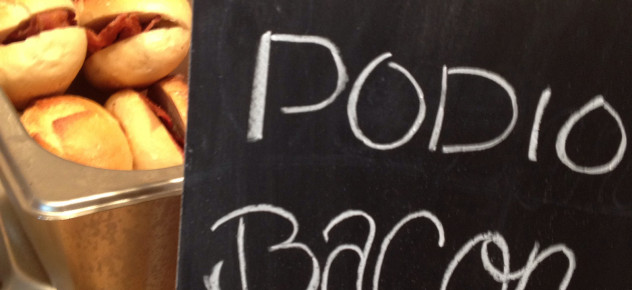 PODIO
Bacon